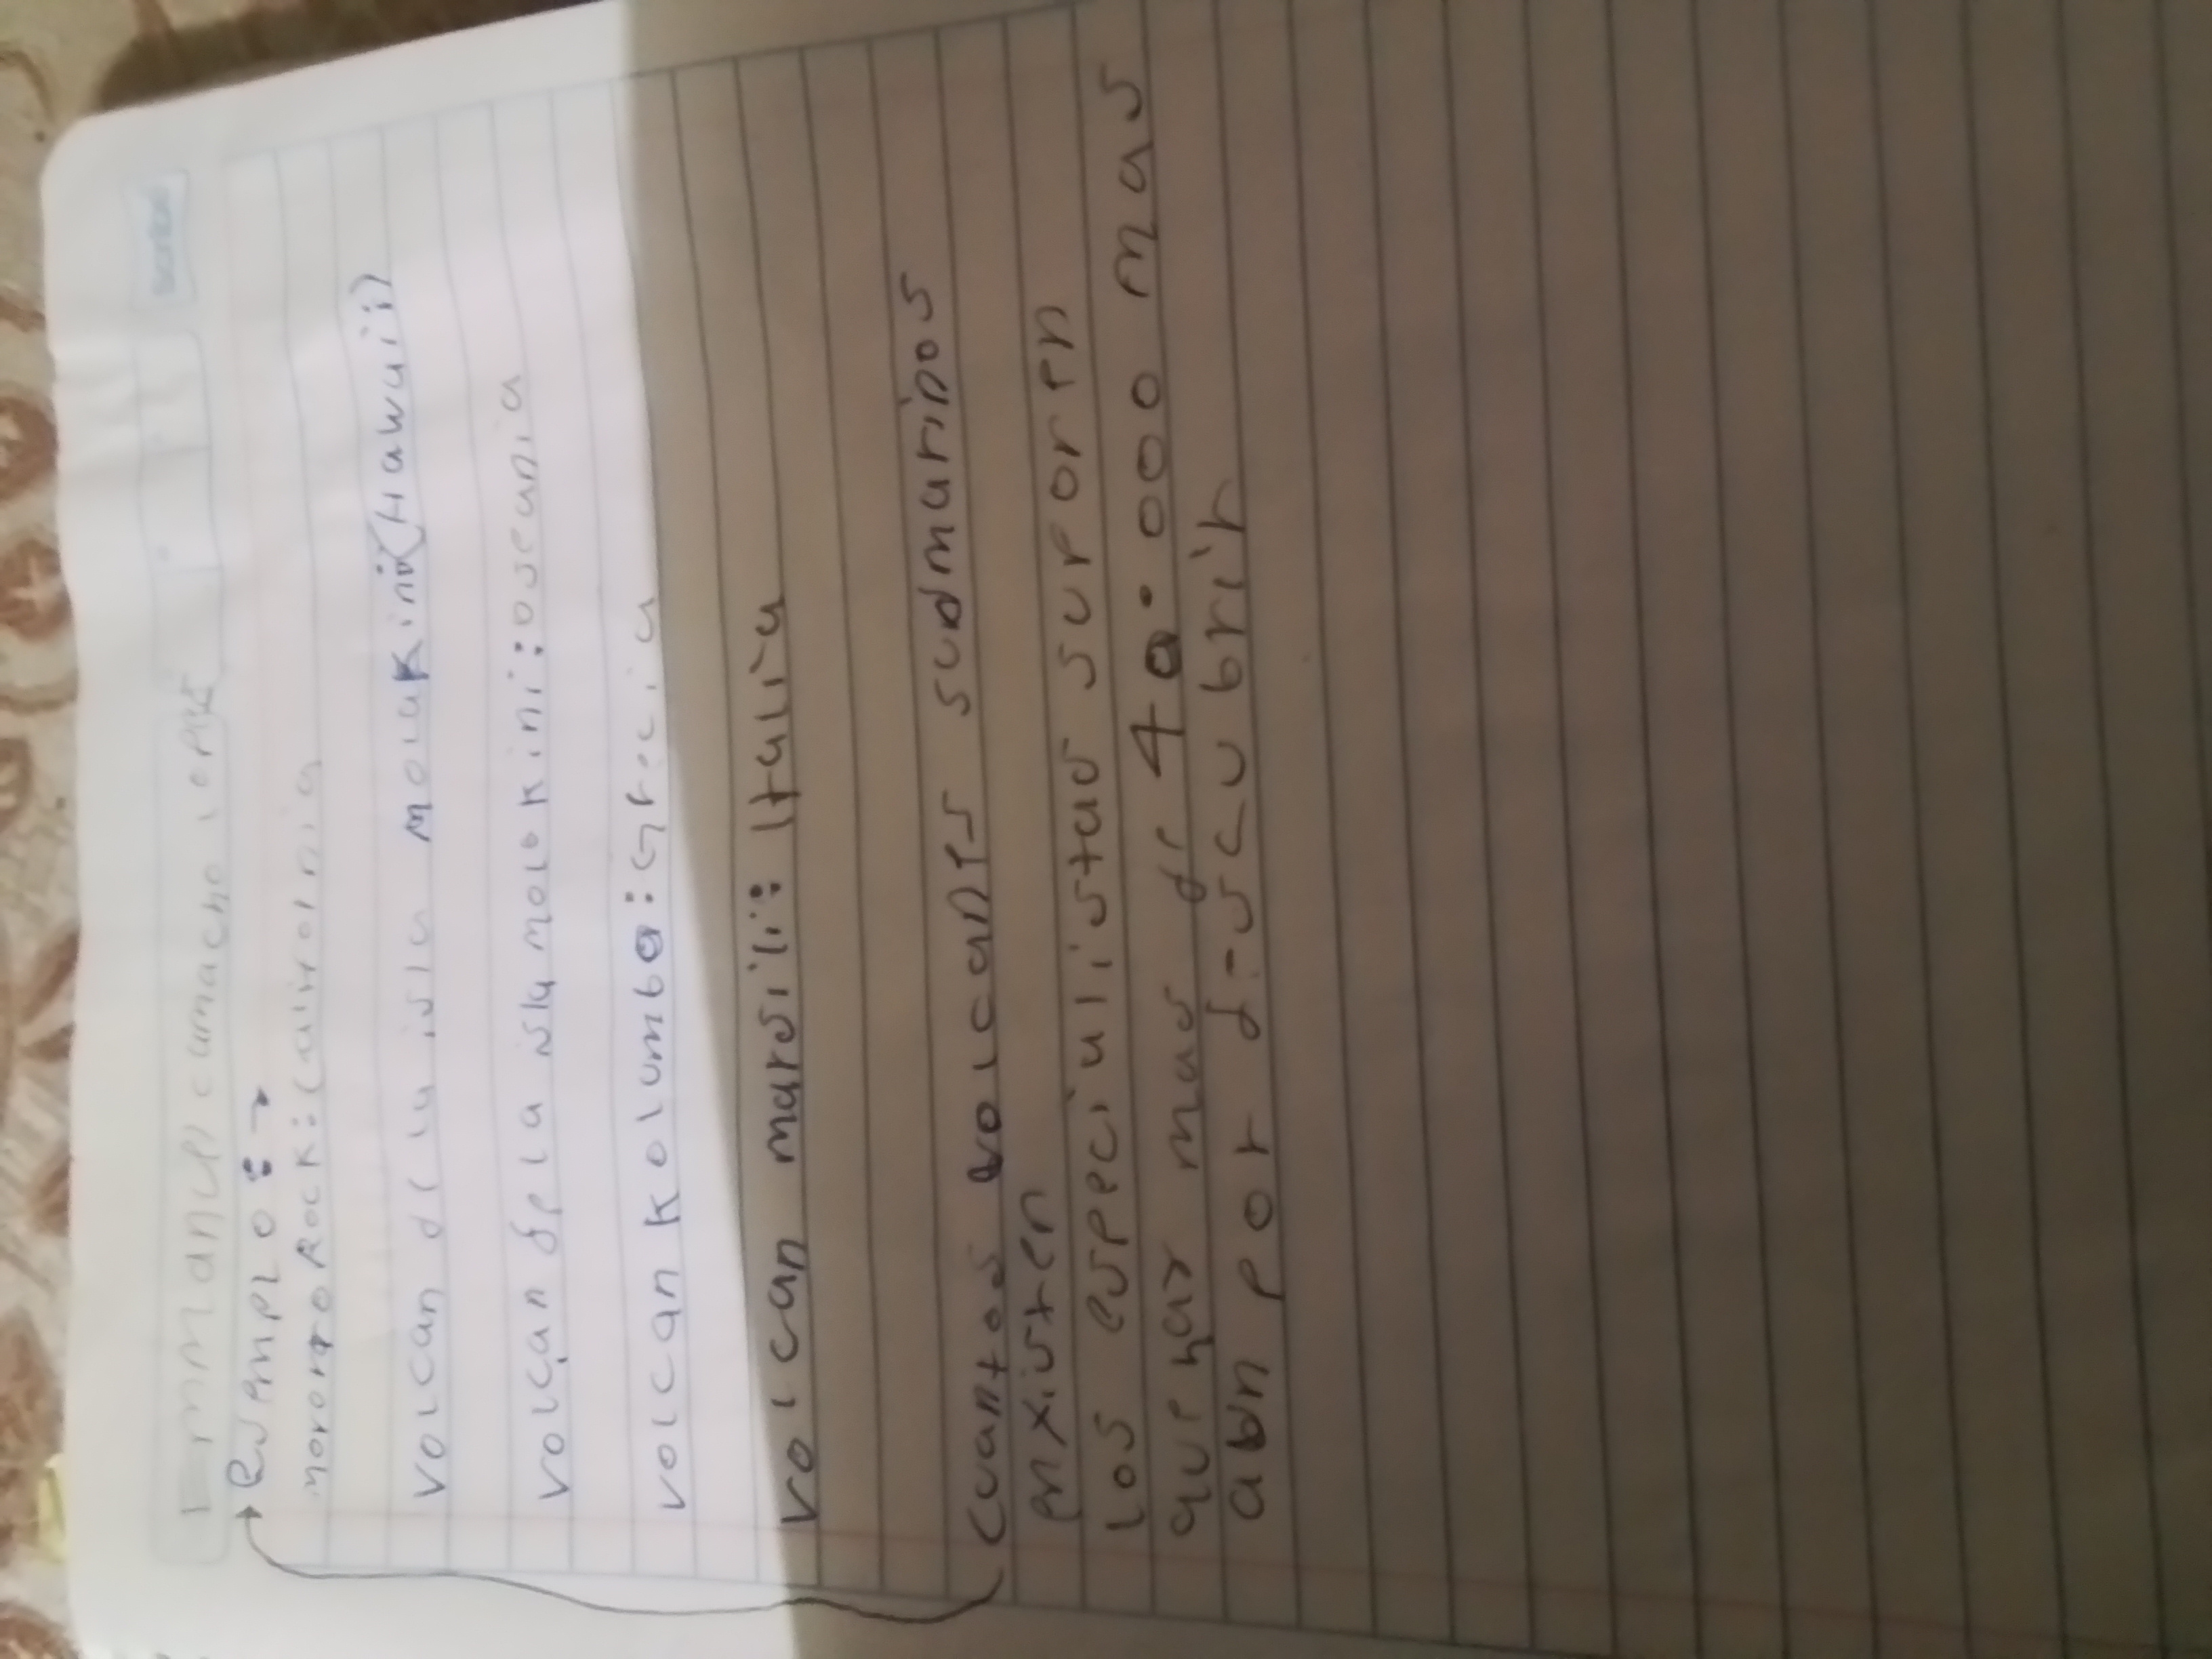 Emmanuel camacho lopez
Ejemplo:→
mororroRock:(california
volcan de la isla molokini(Hawaii)
volcan de la isla molokini:oseania
volcan kolumbo:Grecia
volcan marsili:Italia
cuantos volcanes sudmarinos
enxisten
los especialistas suponen
que hay mas de 40.000 mas
aun por descubrir